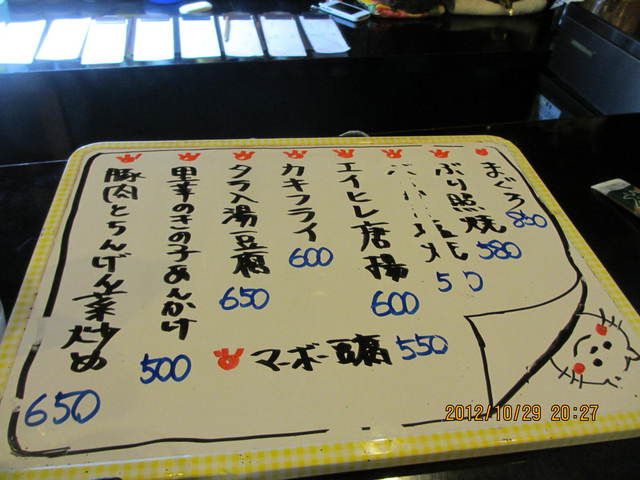 まぐろ 850
ぶり照焼 580
エイヒレ唐揚 600
カキフライ 600
タラ入湯豆腐 650
里芋のきの子あんかけ 500
豚肉とちんげん菜炒め 650
マーボー豆腐 550
2012/10/29 20:27